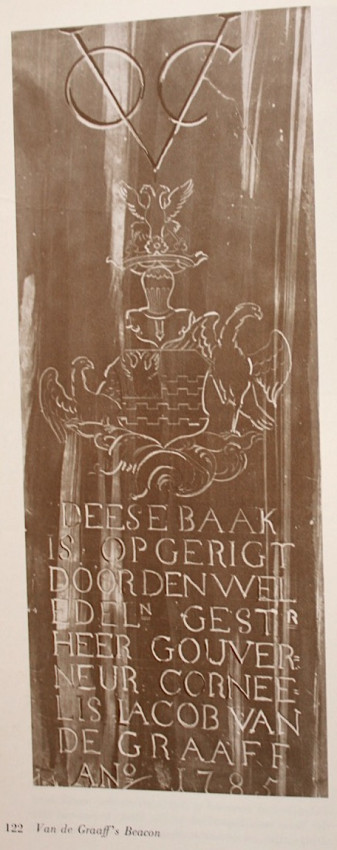 VOC
DEESE BAAK
IS OPGERIGT
DOOR DEN WEL
EDELN GESTR
HEER GOUVER=
NEUR CORNEE=
LIS IACOB VAN
DE GRAAFF
ANO 1785
122 Van de Graaff's Beacon